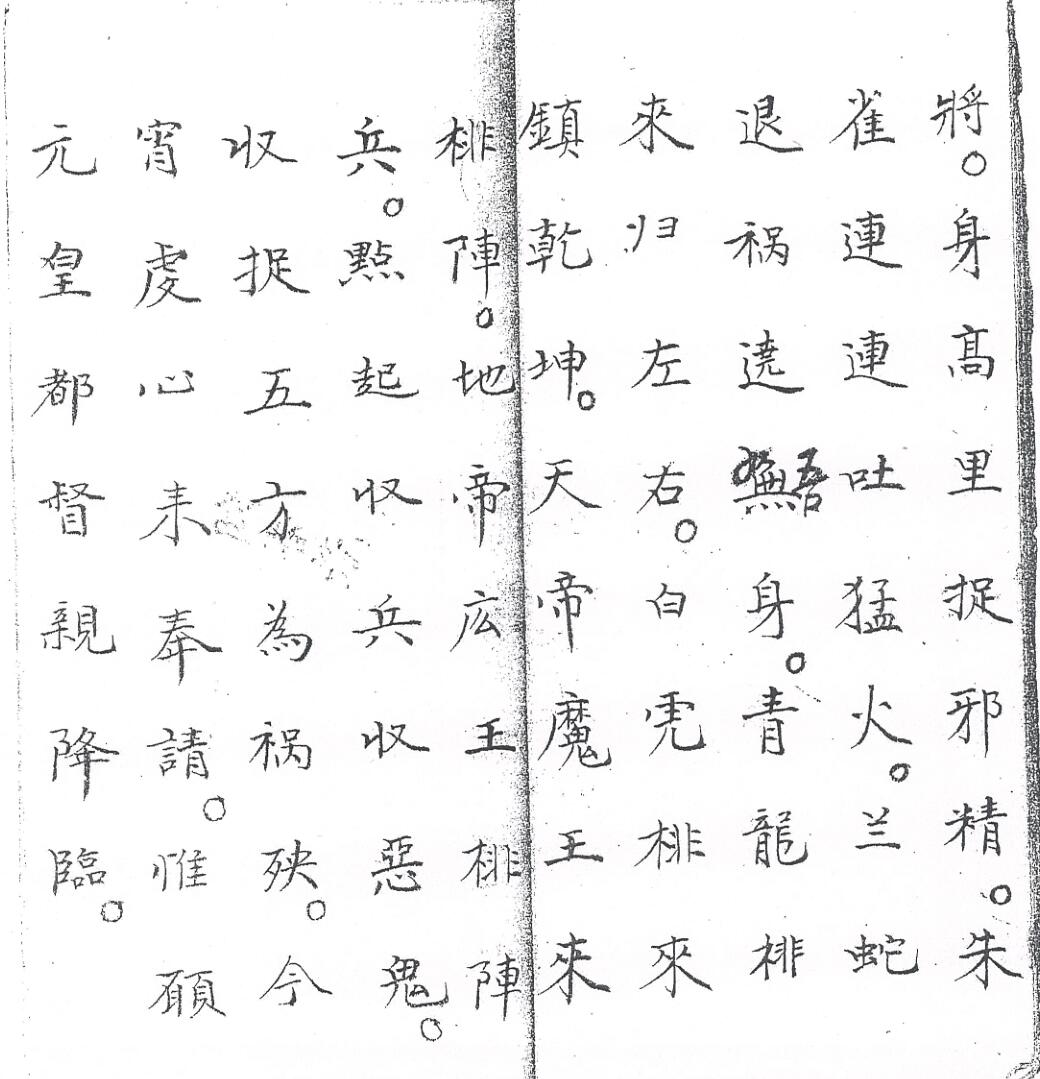 將。身高里捉邪精。朱
雀連連吐猛火。兰蛇
退祸遶吾身。青龍排
來归左右。白虎排來
鎮乾坤。天帝魔王來
排陣。地帝広王排陣
兵。點起收兵收惡鬼。
收捉五方為祸殃。今
宵虔心来奉請。惟願
元皇都督親降臨。